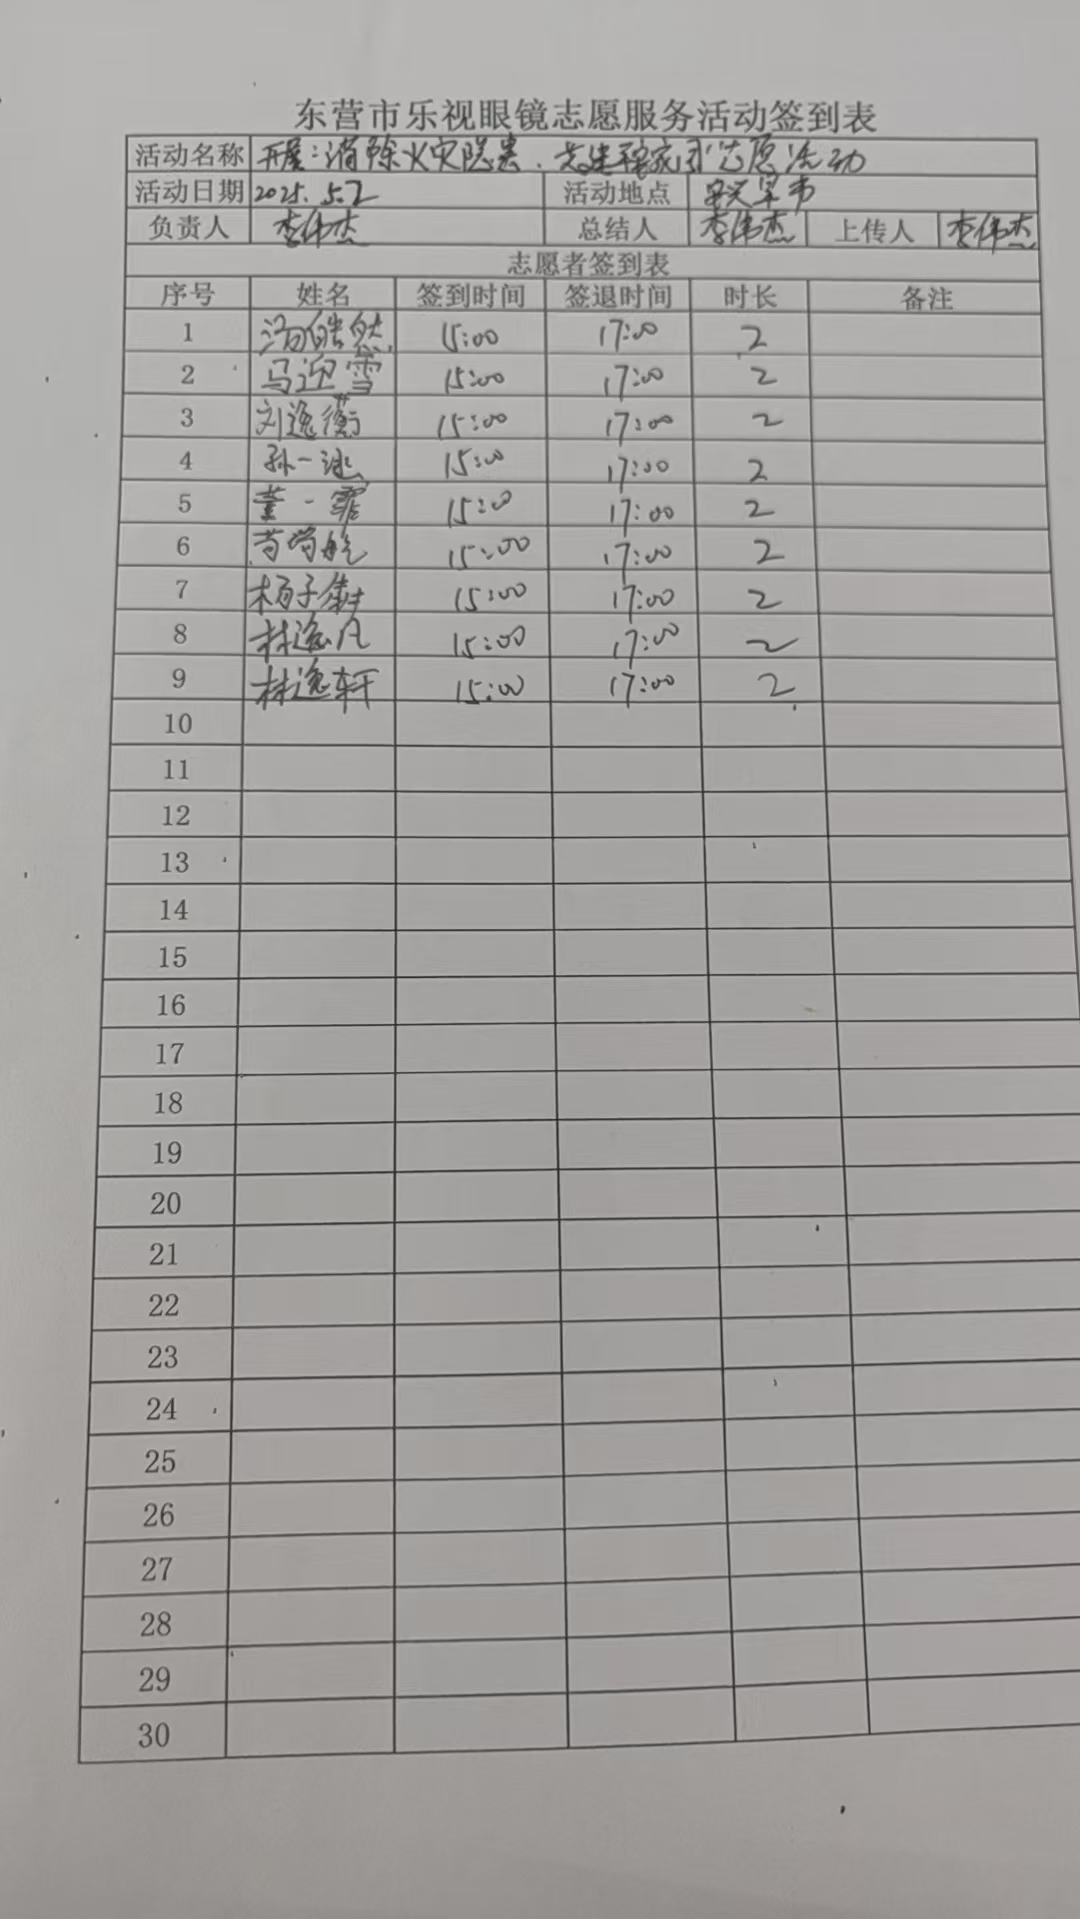 东营市乐视眼镜志愿服务活动签到表
活动名称 开展:消除火灾隐患、共建 家园志愿活动
活动日期 2025.5.2 活动地点
负责人 李伟杰 总结人 李伟杰 上传人 李伟杰
志愿者签到表
序号 姓名 签到时间 签退时间 时长 备注
1 汤皓然 15:00 17:00 2
2 马迎雪 15:00 17:00 2
3 刘逸蘅 15:00 17:00 2
4 孙一 15:00 17:00 2
5 董一霏 15:00 17:00 2
6 15:00 17:00 2
7 杨子 15:00 17:00 2
8 林逸凡 15:00 17:00 2
9 林逸轩 15:00 17:00 2
10
11
12
13
14
15
16
17
18
19
20
21
22
23
24
25
26
27
28
29
30